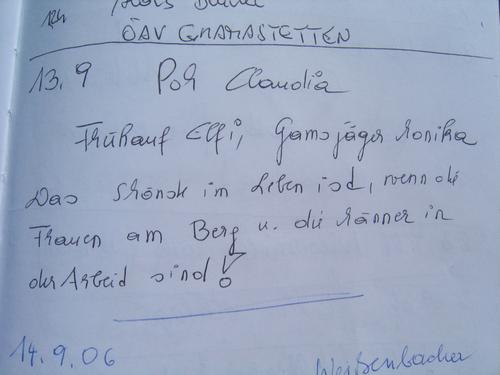 ÖAV GRAMASTETTEN
13.9 Poh Claudia
Frühauf Elfi, Gamsjäger Monika
Das Shönste im Leben isd, wenn die
Frauen am Berg u. die Männer in
der Arbeid sind!
14.9.06
Weißenbacher